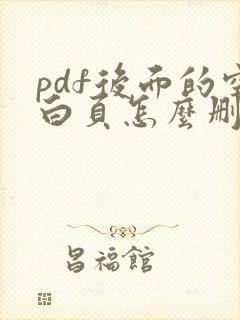 pdf後面的空
白頁怎麼刪
昌福館